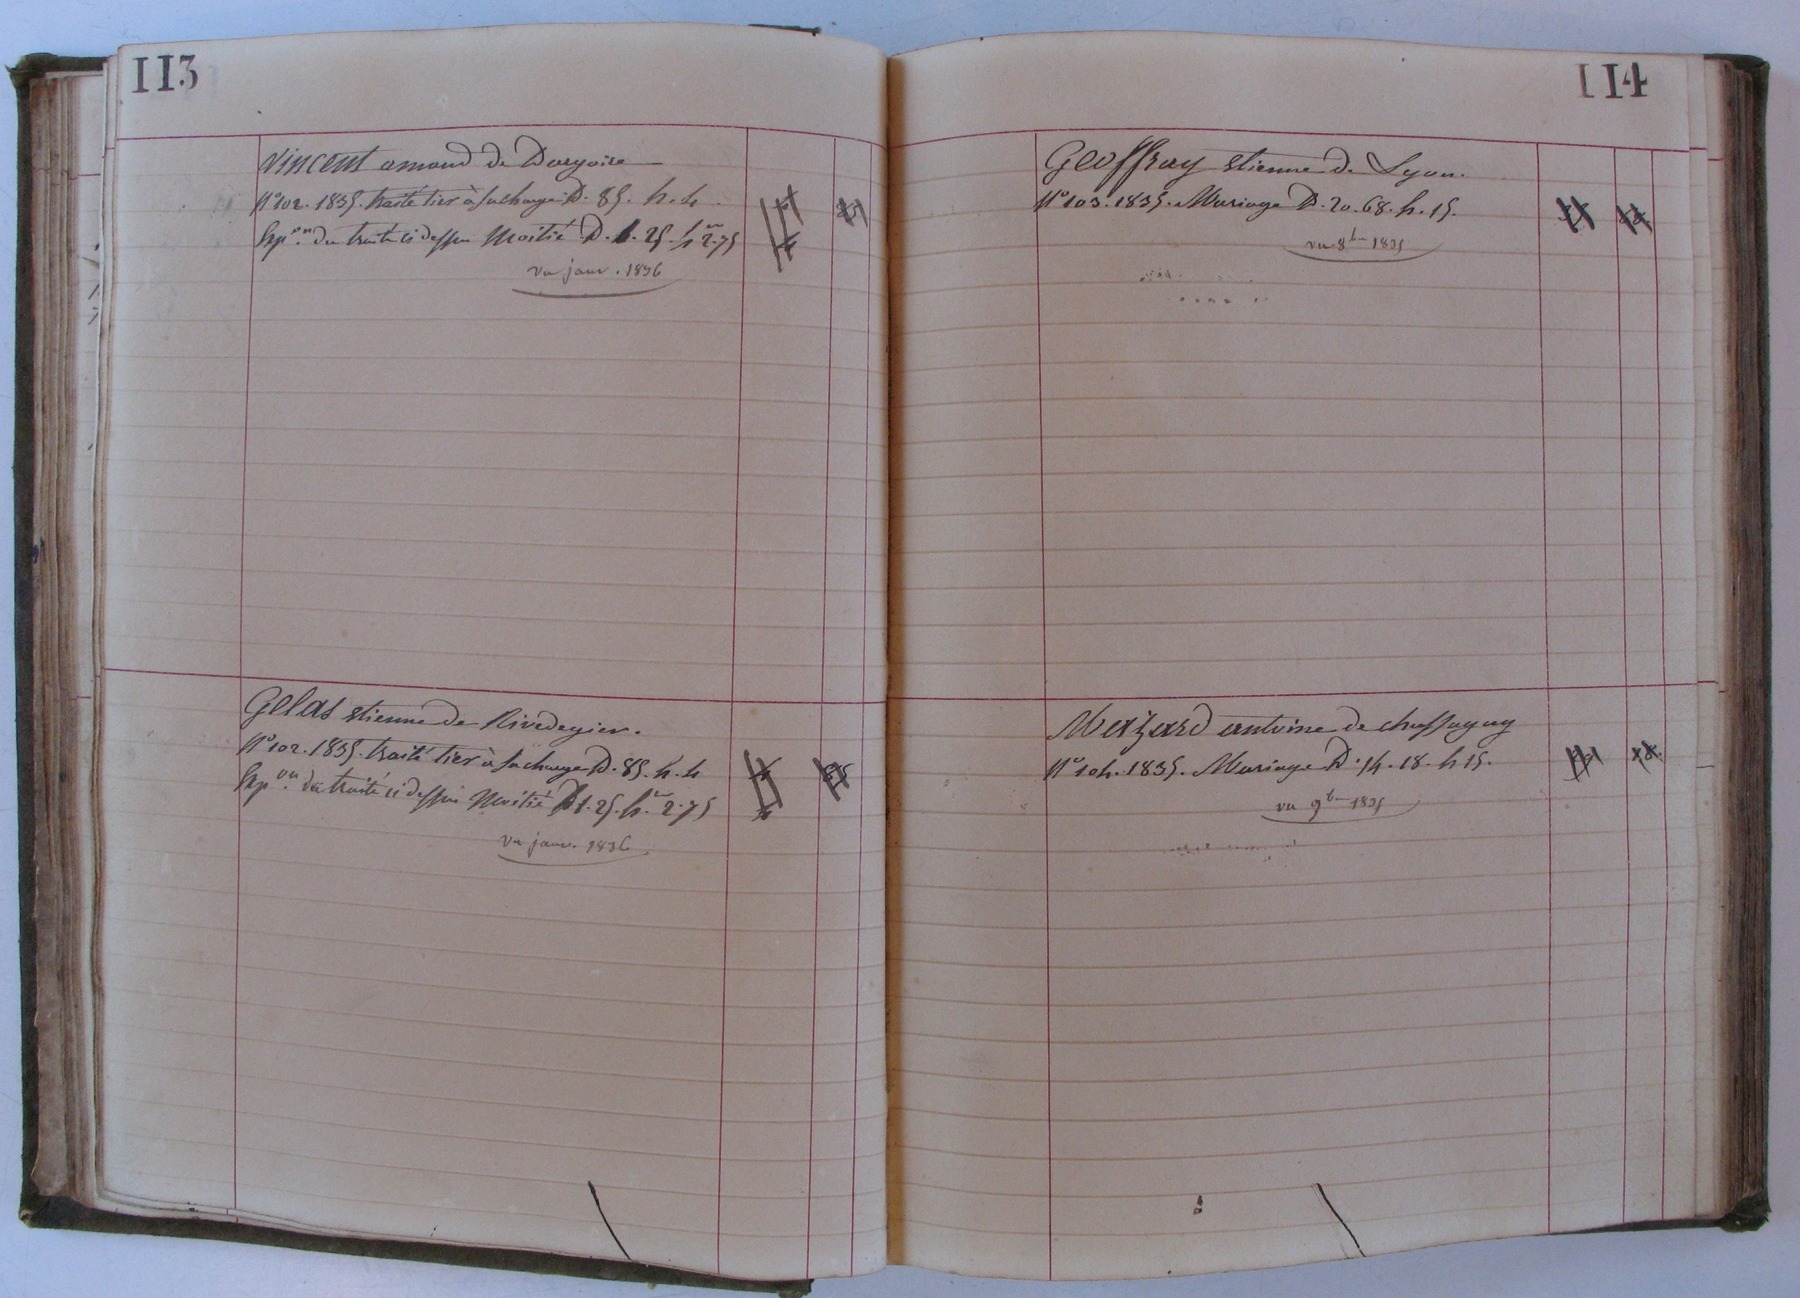 113
Vincent amand de Dargoire
N° 102. 1835. traité tier à sa charge D. 85. h. 4
Exp.on du traité ci dessus Moitié D. 1. 25. h.re 2.75
vu janv. 1836
Gelas etienne de Rivedegier.
N° 102. 1835. traité tier à sa charge D. 85. h. 4
Exp.on du traité ci dessus Moitié D 1. 25. h.re 2.75
vu janv. 1836
114
Geoffray etienne de Lyon.
N° 103. 1835. Mariage D. 20. 68. h. 15.
vu 8bre 1835
Mazard antoine de chassagny
N° 104. 1835. Mariage D. 14. 18. h 15.
vu 9bre 1835